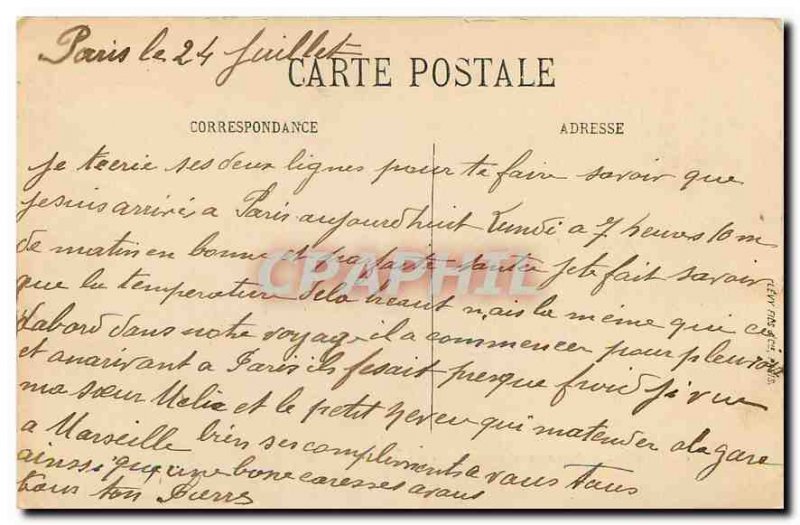 Paris le 24 Juillet
CARTE POSTALE
CORRESPONDANCE
ADRESSE
je tecrie ses deux lignes pour te faire savoir que
je suis arrivé a Paris aujourdhuit Lundi a 7 heures 10 m
de matin en bonne et parfaite santée je te fait savoir
que la temperature mais la même que ci
dabord dans notre voyage il a commencer pour pleuvoir
et anarivant a Paris ils fesait presque froid ji vue
ma sœur Melie et le petit neveu qui matender a la gare
a Marseille bien ses compliments a vous tous
ainssi qu'une bone caresses a vous
tous ton Pierre
LÉVY FILS & CIE PARIS
CPAPHIL